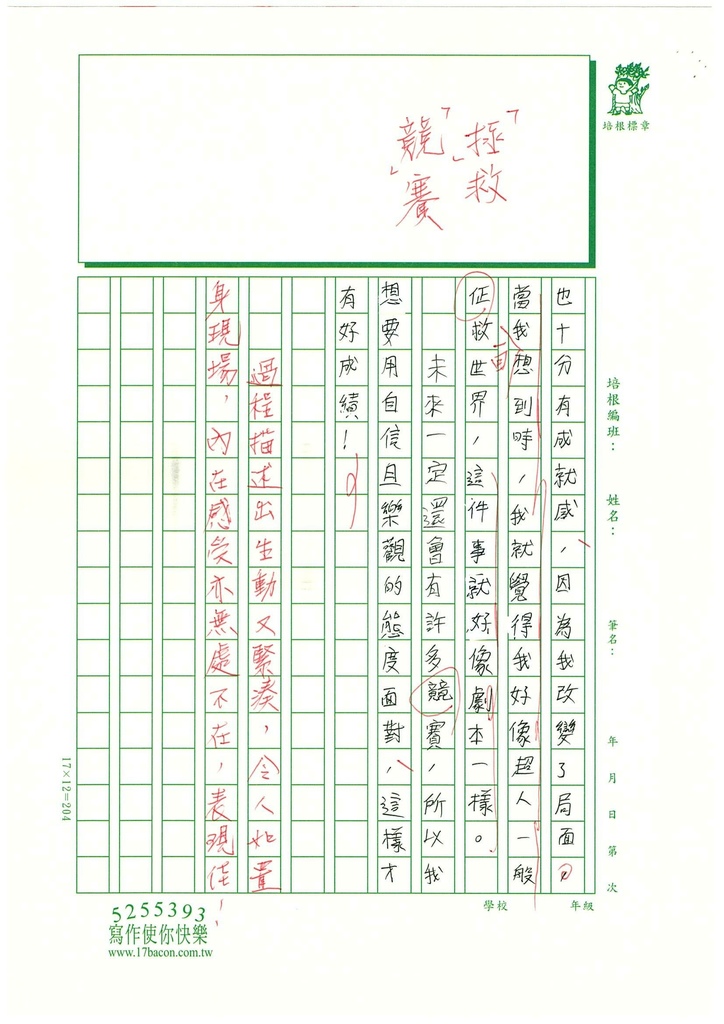 培根標章
「拯救」
「競賽」
培根編班： 姓名： 筆名： 年 月 日 第 次
也十分有成就感，因為我改變了局面。
當我想到時，我就覺得我好像超人一般
面
征救世界，這件事就好像劇本一樣。
未來一定還會有許多競賽，所以我
想要用自信且樂觀的態度面對，這樣才
有好成績！
過程描述出生動又緊湊，令人如置
身現場，內在感受亦無處不在，表現佳！
17×12=204
學校 年級
5255393
寫作使你快樂
www.17bacon.com.tw